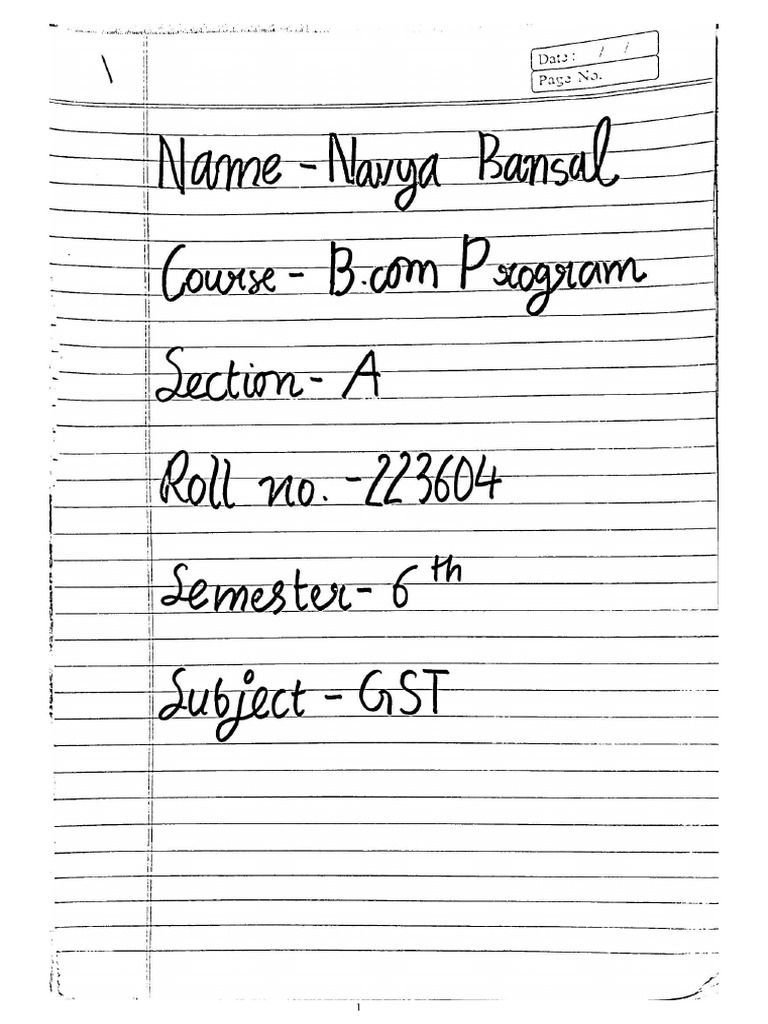 Date: / /
Page No.
\
Name - Navya Bansal
Course - B.com Program
Section - A
Roll no. - 223604
Semester - 6th
Subject - GST
1